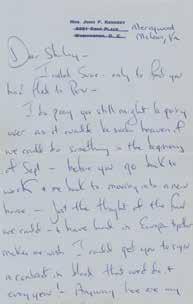 MRS. JOHN F. KENNEDY
WASHINGTON, D. C.
Merrywood
McLean, Va
Dear Stanley –
I called Susie – only to find you
had fled to Row –
I do pray you still might be going
over – as it would be such heaven if
we could do something in the beginning
of Sept – before you go back to
work & me back to moving into a new
house – Just the thought of the fun
we could have had in Europe together
makes me wish I could get you to sign
a contract in blood that we'd do it
every year! Anyway here are my